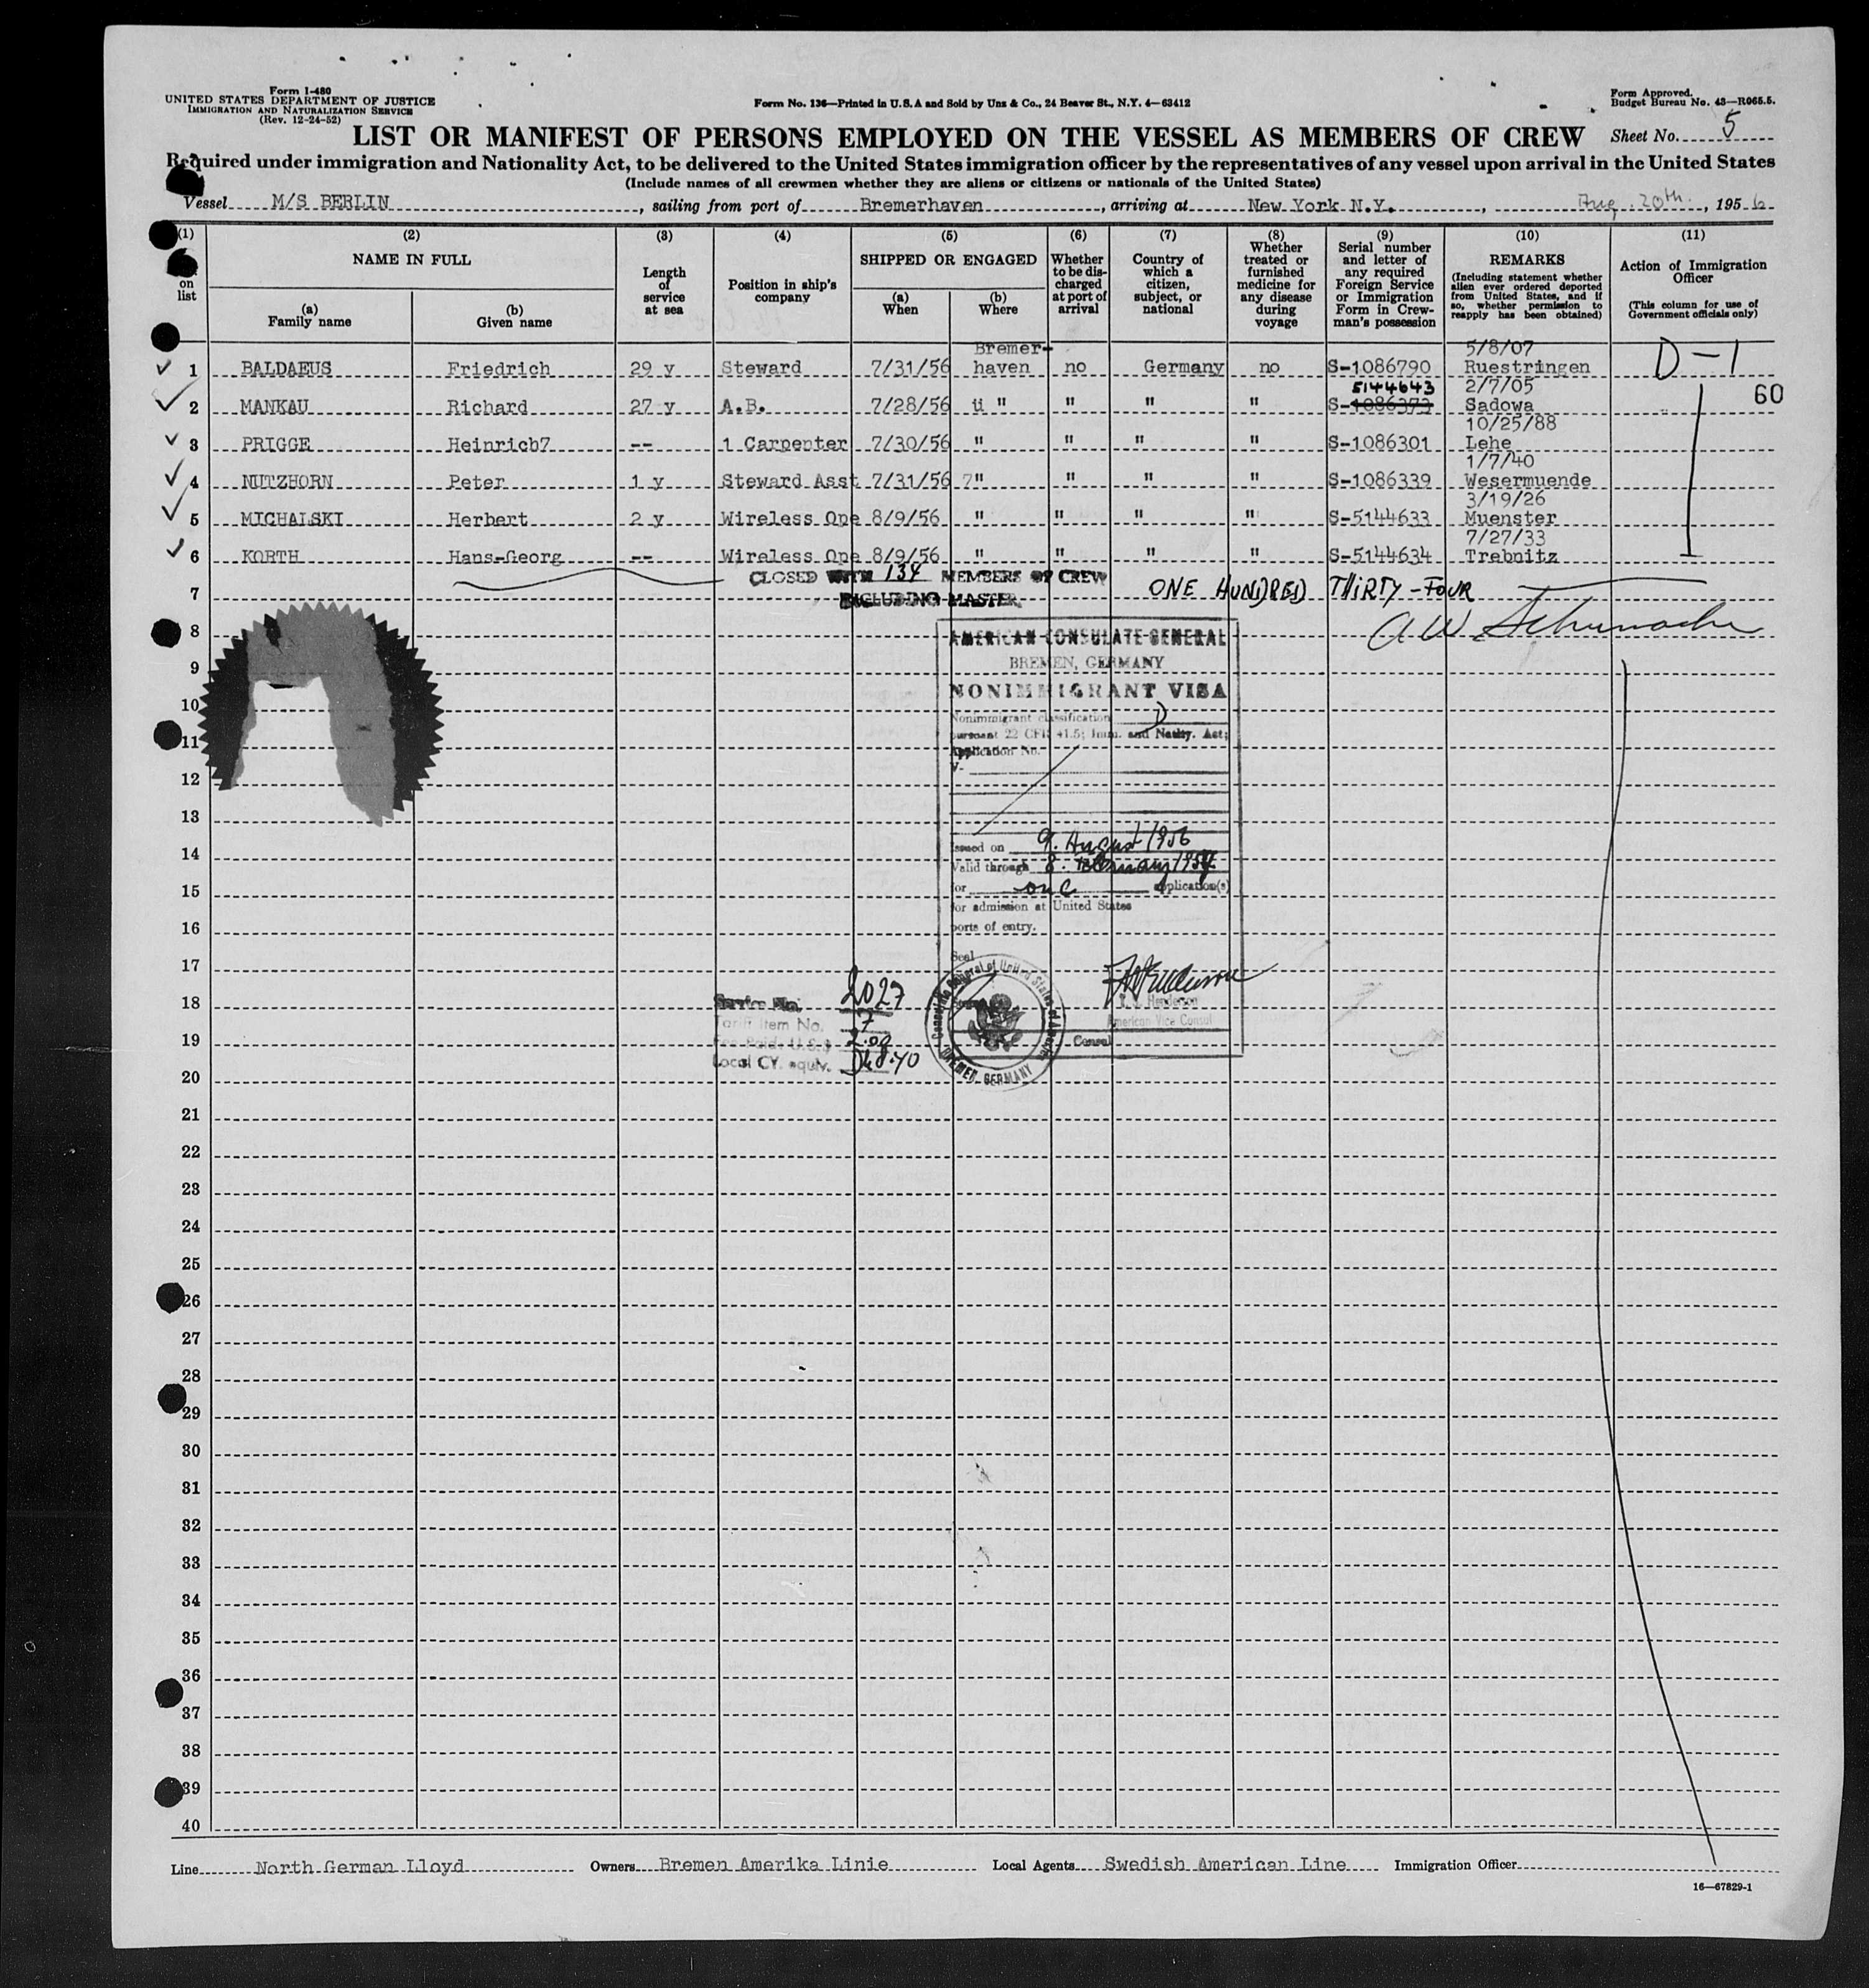 Form I-480
UNITED STATES DEPARTMENT OF JUSTICE
IMMIGRATION AND NATURALIZATION SERVICE
(Rev. 12-24-52)
Form No. 136—Printed in U.S.A and Sold by Unz & Co., 24 Beaver St., N.Y. 4—63412
Form Approved.
Budget Bureau No. 43—R065.5.
LIST OR MANIFEST OF PERSONS EMPLOYED ON THE VESSEL AS MEMBERS OF CREW
Sheet No. 5
Required under immigration and Nationality Act, to be delivered to the United States immigration officer by the representatives of any vessel upon arrival in the United States
(Include names of all crewmen whether they are aliens or citizens or nationals of the United States)
Vessel M/S BERLIN, sailing from port of Bremerhaven, arriving at New York N.Y., Aug. 20th, 1956
(1) (2) (3) (4) (5) (6) (7) (8) (9) (10) (11)
on list
NAME IN FULL
(a) Family name
(b) Given name
Length of service at sea
Position in ship's company
SHIPPED OR ENGAGED
(a) When
(b) Where
Whether to be discharged at port of arrival
Country of which a citizen, subject, or national
Whether treated or furnished medicine for any disease during voyage
Serial number and letter of any required Foreign Service or Immigration Form in Crewman's possession
REMARKS
(Including statement whether alien ever ordered deported from United States, and if so, whether permission to reapply has been obtained)
Action of Immigration Officer
(This column for use of Government officials only)
Bremer- 5/8/07
1 BALDAEUS Friedrich 29 y Steward 7/31/56 haven no Germany no S-1086790 Ruestringen D-1
5144643 2/7/05 60
2 MANKAU Richard 27 y A.B. 7/28/56 " " " " S-1086373 Sadowa
10/25/88
3 PRIGGE Heinrich7 -- 1 Carpenter 7/30/56 " " " " S-1086301 Lehe
1/7/40
4 NUTZHORN Peter 1 y Steward Asst 7/31/56 7" " " " S-1086339 Wesermuende
3/19/26
5 MICHALSKI Herbert 2 y Wireless Ope 8/9/56 " " " " S-5144633 Muenster
7/27/33
6 KORTH Hans-Georg -- Wireless Ope 8/9/56 " " " " S-5144634 Trebnitz
CLOSED WITH 134 MEMBERS OF CREW
7 INCLUDING MASTER ONE HUNDRED THIRTY-FOUR
8 AMERICAN CONSULATE GENERAL
A W Schumacher
9 BREMEN, GERMANY
NONIMMIGRANT VISA
10 Nonimmigrant classification D
11 pursuant 22 CFR 41.5; Imm. and Natlty. Act;
Application No.
12 V-
13
14 Issued on 9. August 1956
Valid through 8. February 1957
15 for one application(s)
for admission at United States
16 ports of entry.
17 Seal
18 Service No. 2027
Tariff Item No. 7
19 Fee Paid: U.S.$ 2.00
Local CY. equiv. DM 8.40
Henderson
American Vice Consul
Consul
Consulate General of United States of America
BREMEN, GERMANY
20
21
22
23
24
25
26
27
28
29
30
31
32
33
34
35
36
37
38
39
40
Line North German Lloyd Owners Bremen Amerika Linie Local Agents Swedish American Line Immigration Officer
16—67829-1